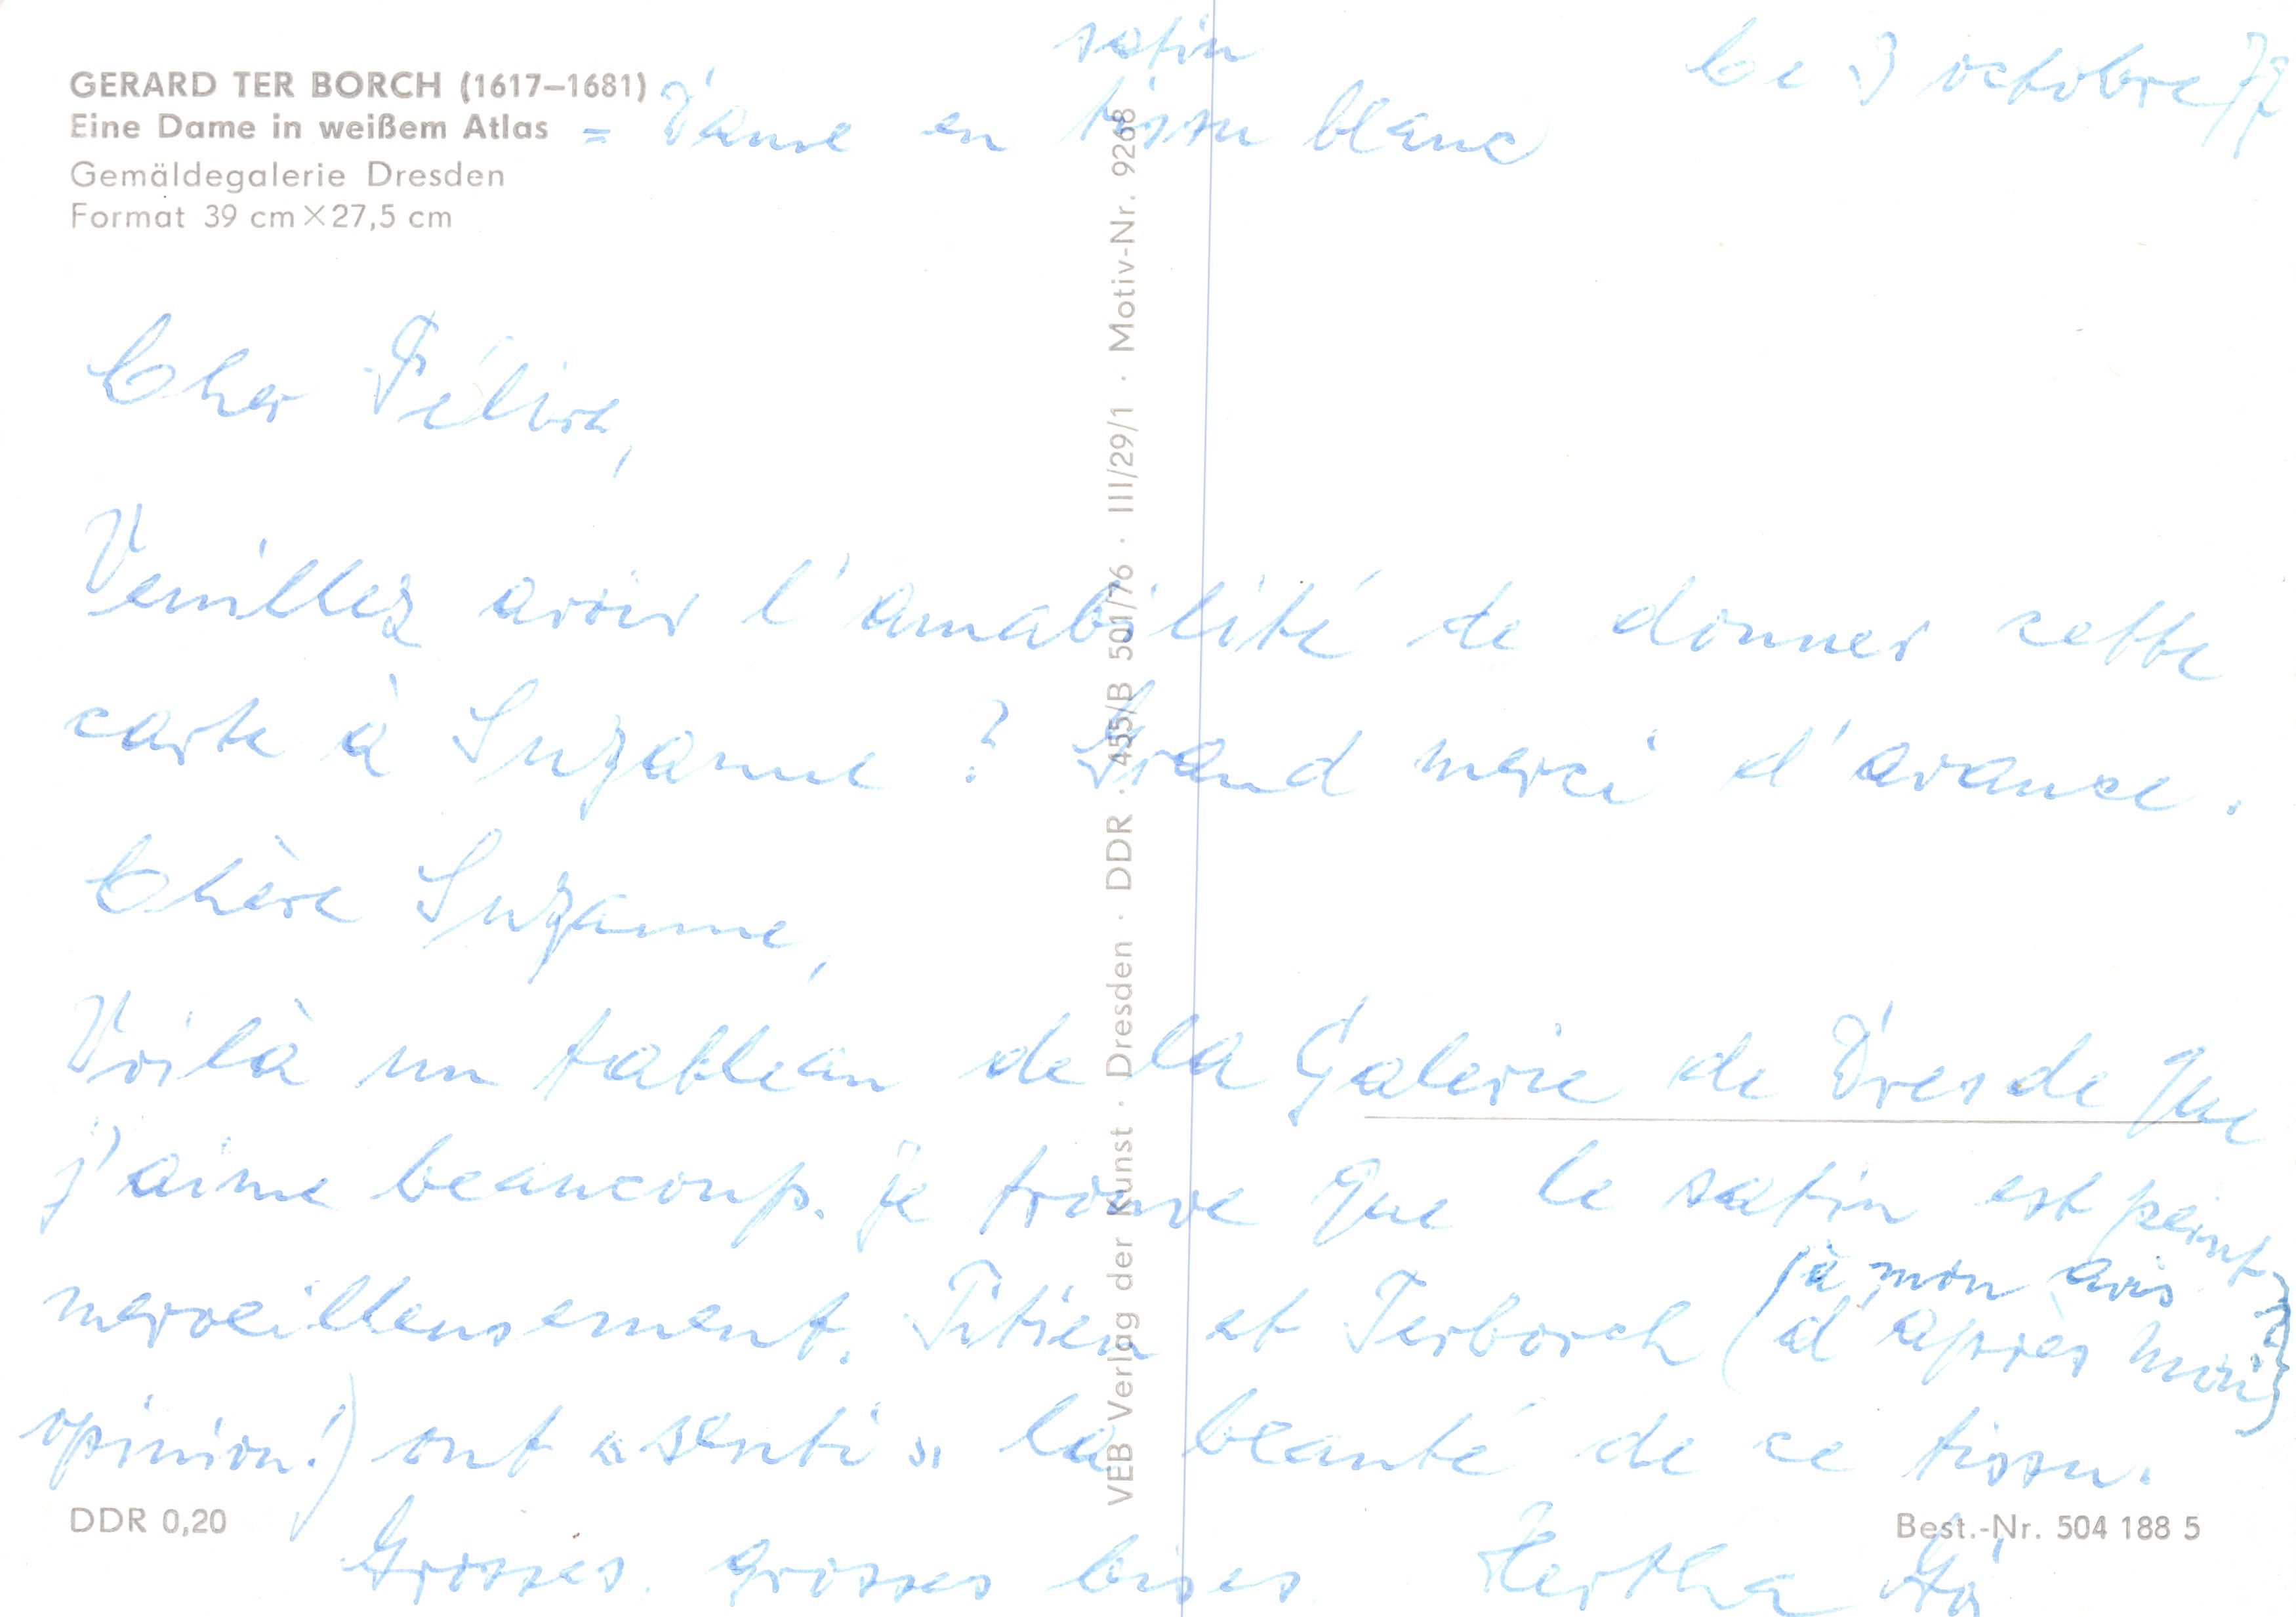 satin
Ce 3 octobre 77
GERARD TER BORCH (1617–1681)
Eine Dame in weißem Atlas = Dame en tissu blanc
Gemäldegalerie Dresden
Format 39 cm × 27,5 cm
Cher Félix,
Veuillez avoir l'amabilité de donner cette
carte à Suzanne ? Grand merci d'avance.
Chère Suzanne,
Voilà un tableau de la Galerie de Dresde que
j'aime beaucoup. Je trouve que le satin est peint
(à mon avis
merveilleusement. Titien et Terborch (d'après mon
opinion!) ont « senti » la beauté de ce tissu.
DDR 0,20
Best.-Nr. 504 188 5
Grosses, grosses bises Hertha
VEB Verlag der Kunst · Dresden · DDR · 455/B 501/76 · III/29/1 · Motiv-Nr. 9268